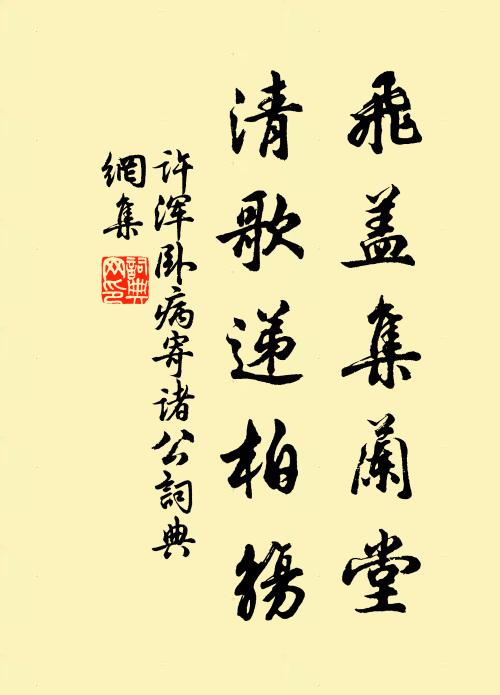 飛盖集蘭堂
清歌递柏觴
许浑卧病寄诸公詞典
網集
詞典网印